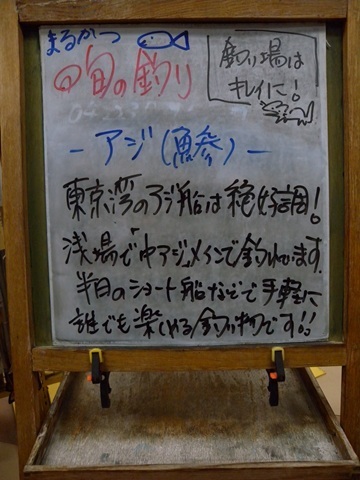 まるかつ
旬の釣り
釣り場は
キレイに!
-アジ(鯵)-
東京湾のアジ船は絶好調!
浅場で「中アジ」メインで釣れています。
半日のショート船などで手軽に
誰でも楽しめる釣り物です!!